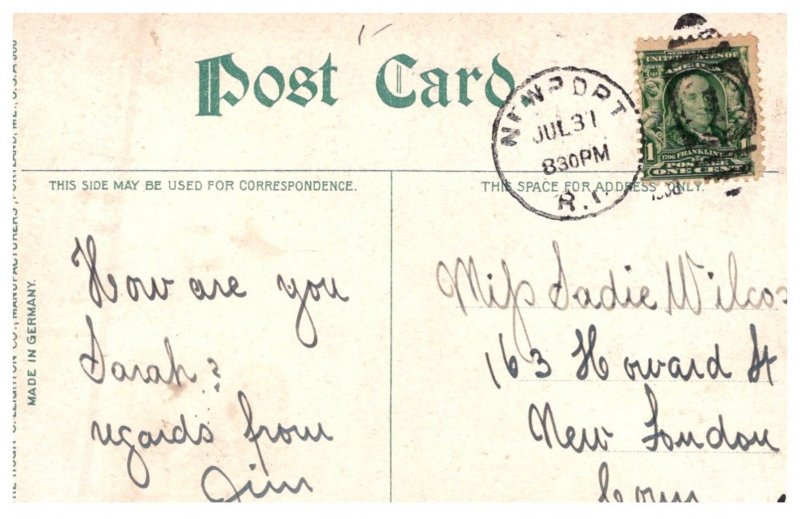 Post Card
NEWPORT
JUL 31
830PM
R.I.
UNITED STATES OF
AMERICA
1706 FRANKLIN
POSTAGE
1
ONE CENT
THIS SIDE MAY BE USED FOR CORRESPONDENCE.
THIS SPACE FOR ADDRESS ONLY.
1908
How are you
Sarah?
regards from
Jim
Miss Sadie Wilcox
163 Howard St
New London
Conn
THE HUGH C. LEIGHTON CO., MANUFACTURERS, PORTLAND, ME., U.S.A
MADE IN GERMANY.